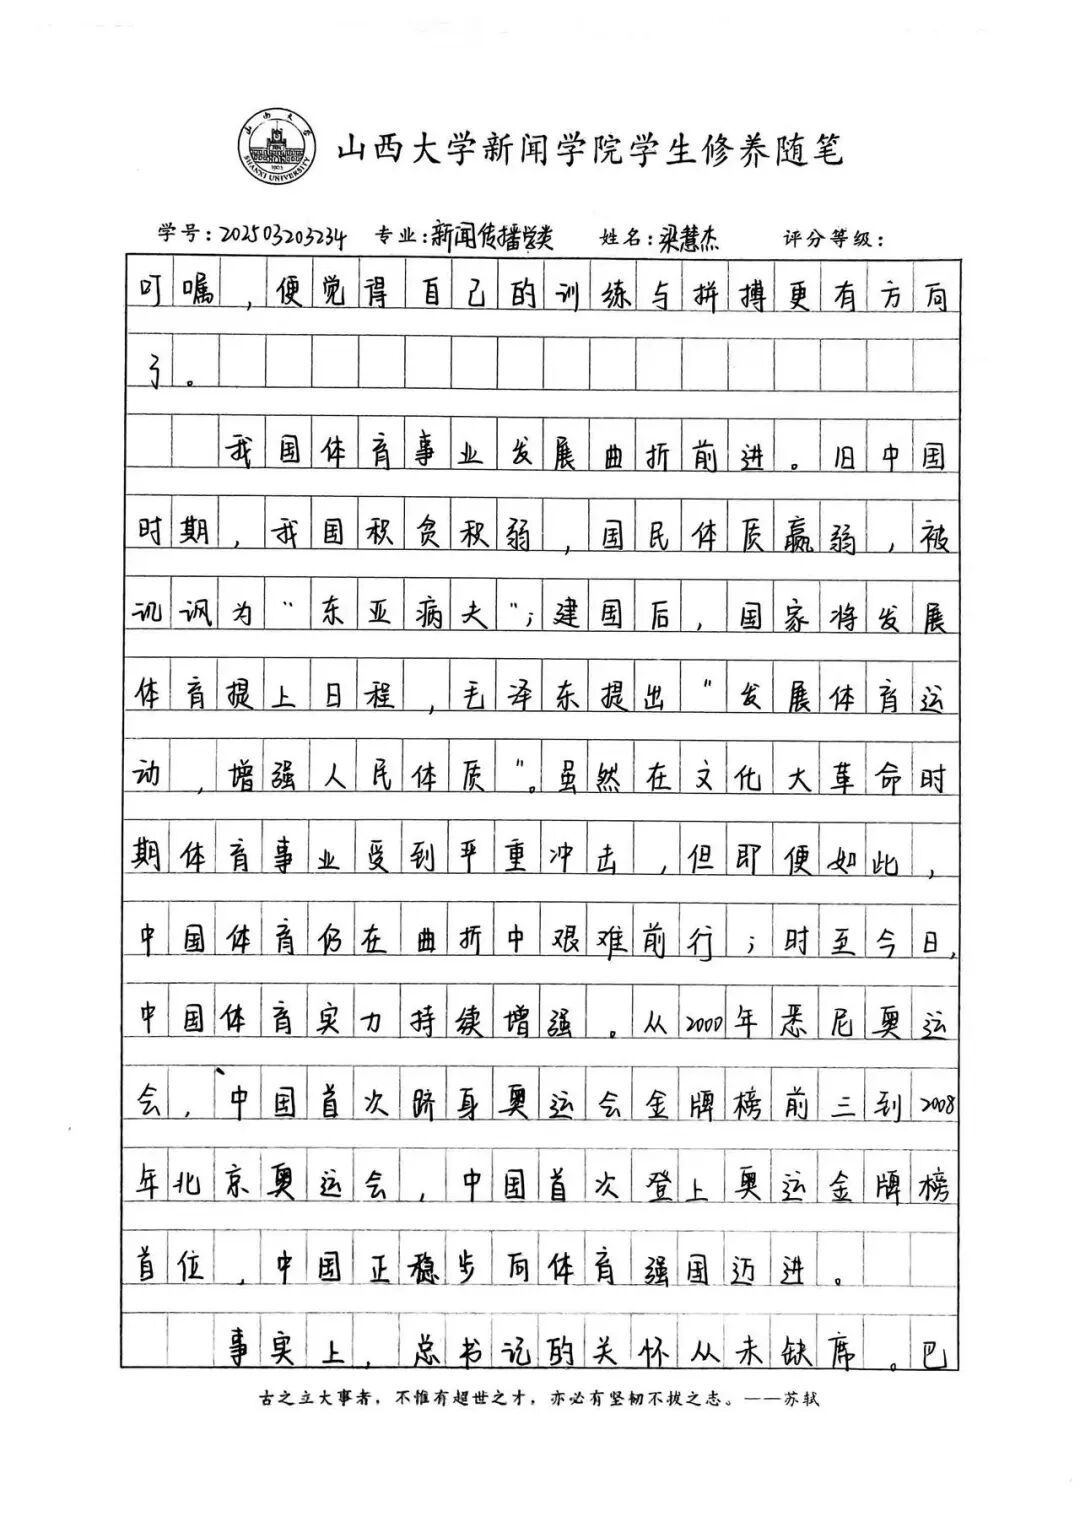 山西大学
SHANXI UNIVERSITY
1902
山西大学新闻学院学生修养随笔
学号：202503203234 专业：新闻传播学类 姓名：梁慧杰 评分等级：
叮嘱，便觉得自己的训练与拼搏更有方向
了。
我国体育事业发展曲折前进。旧中国
时期，我国积贫积弱，国民体质羸弱，被
讥讽为“东亚病夫”；建国后，国家将发展
体育提上日程，毛泽东提出“发展体育运
动，增强人民体质”。虽然在文化大革命时
期体育事业受到严重冲击，但即便如此，
中国体育仍在曲折中艰难前行；时至今日，
中国体育实力持续增强。从2000年悉尼奥运
会，中国首次跻身奥运会金牌榜前三到2008
年北京奥运会，中国首次登上奥运金牌榜
首位，中国正稳步向体育强国迈进。
事实上，总书记的关怀从未缺席。巴
古之立大事者，不惟有超世之才，亦必有坚韧不拔之志。——苏轼